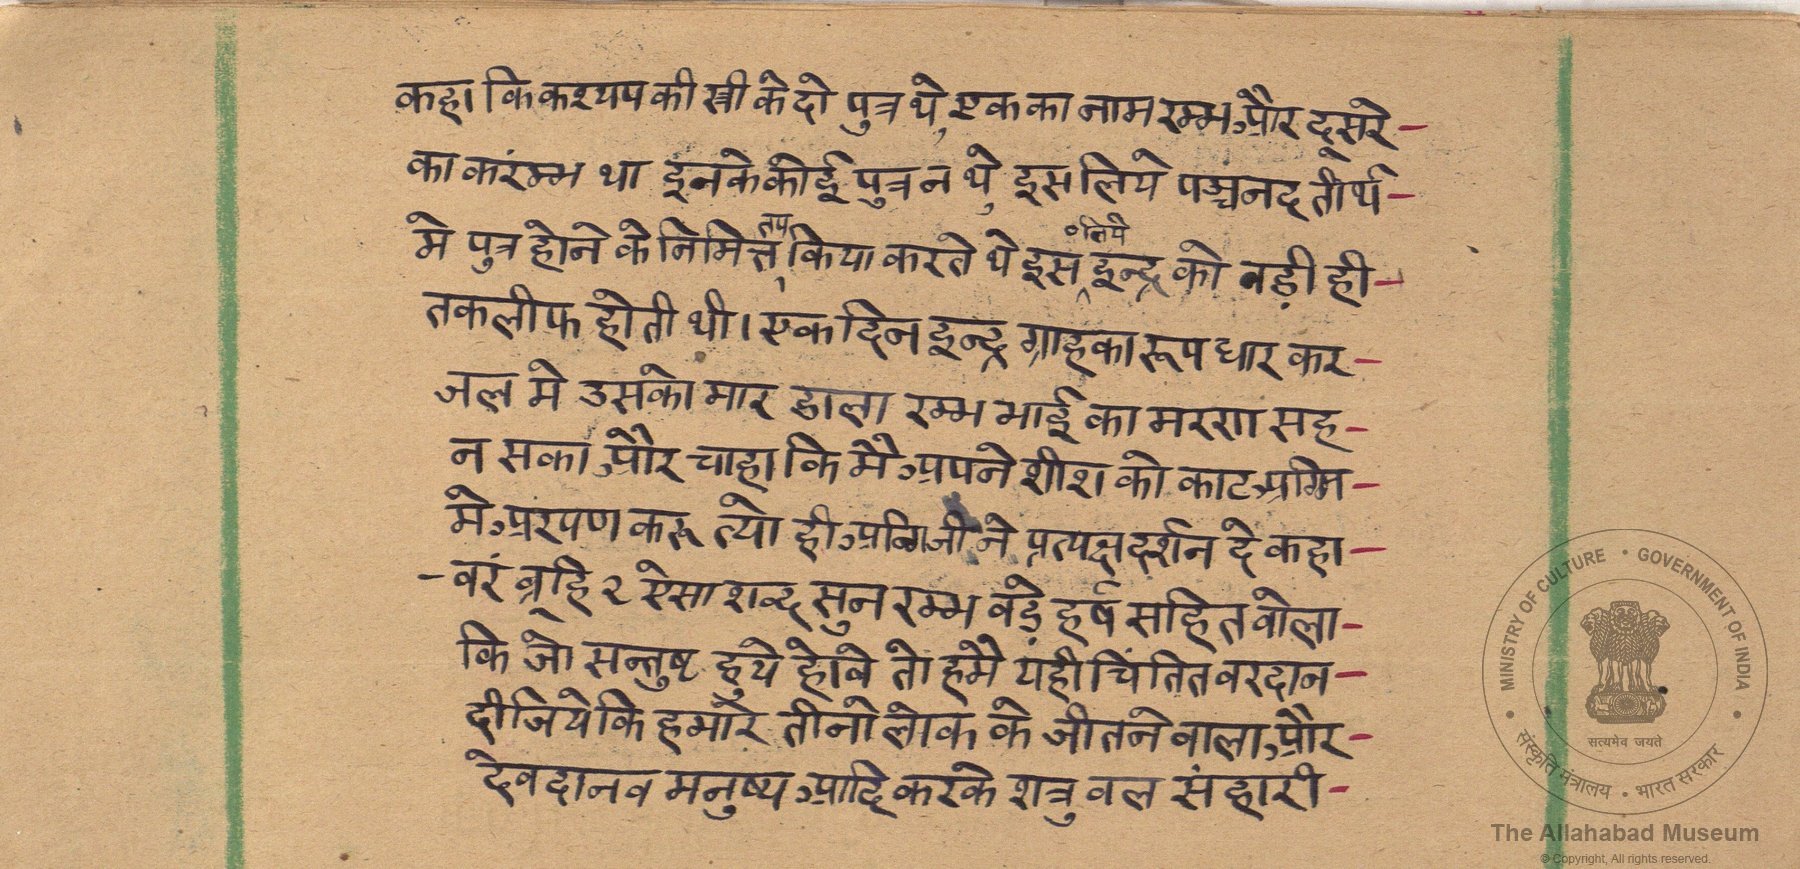 कहा कि कश्यप की स्त्री के दो पुत्र थे एक का नाम रम्भ और दूसरे -
का करंम्भ था इनके कोई पुत्र न थे इस लिये पञ्चनद तीर्थ -
मे पुत्र होने के निमित्त तप किया करते थे इस लिये इन्द्र को वड़ी ही -
तकलीफ होती थी। एक दिन इन्द्र ग्राह का रूप धार कर -
जल मे उसको मार डाला रम्भ भाई का मरण सह -
न सका और चाहा कि मै अपने शीश को काट अग्नि -
मे अरपण करू त्यो ही अग्नि जी ने प्रत्यक्ष दर्शन दे कहा -
- वरं व्रूहि २ ऐसा शव्द सुन रम्भ वड़े हर्ष सहित वोला -
कि जो सन्तुष्ट हुये होवे तो हमै यही चिंतित वरदान -
दीजिये कि हमारे तीनो लोक के जीतने वाला और -
देव दानव मनुष्य आदि करके शत्रु वल संहारी -
MINISTRY OF CULTURE • GOVERNMENT OF INDIA
सत्यमेव जयते
संस्कृति मंत्रालय • भारत सरकार
The Allahabad Museum
© Copyright, All rights reserved.